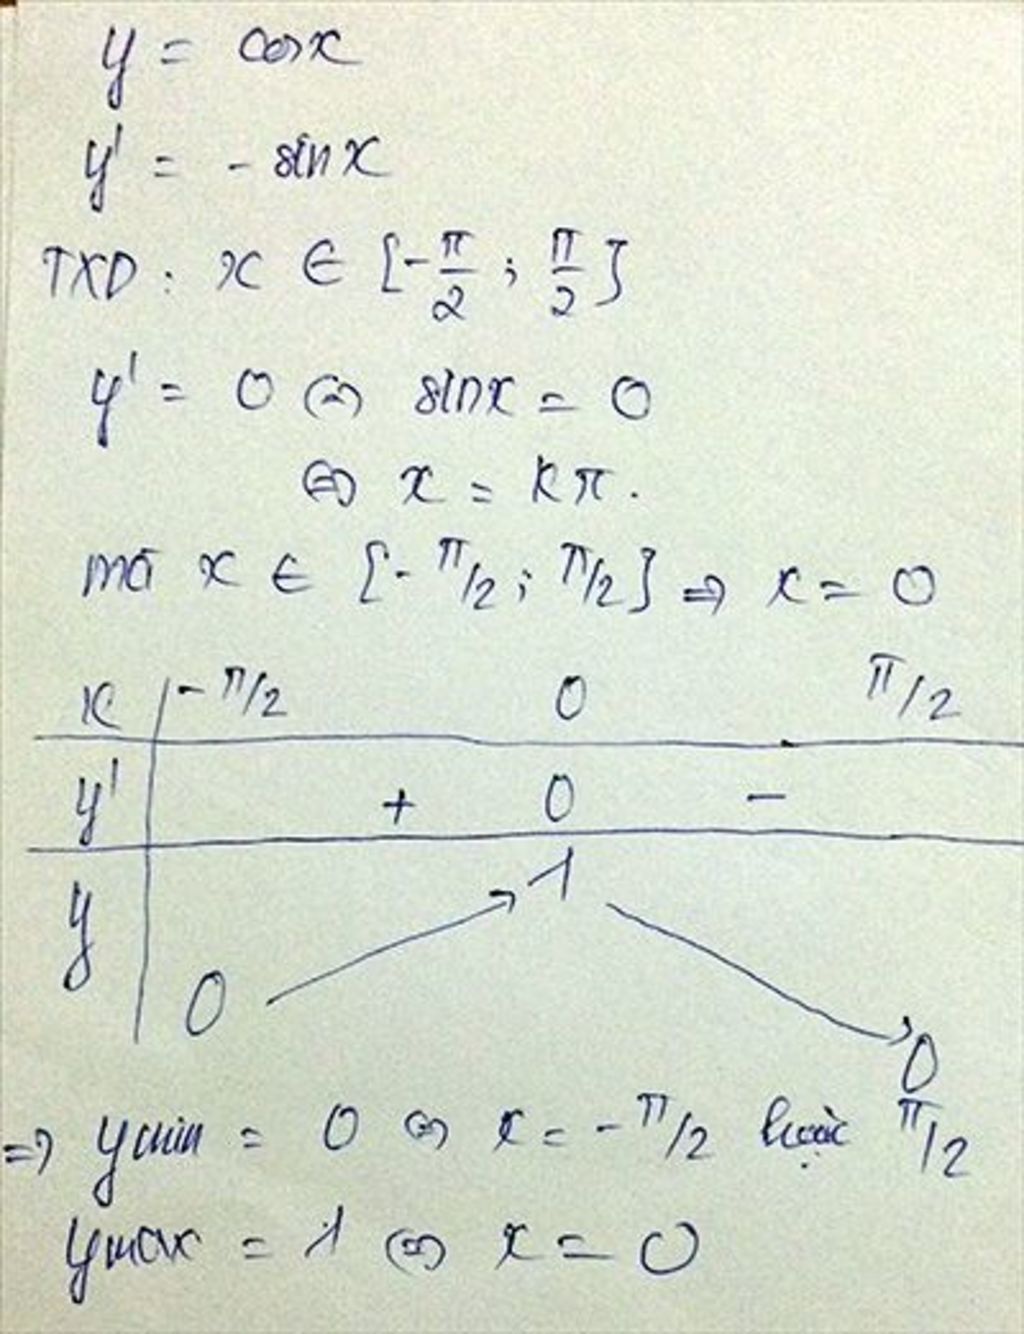 y = cosx
y' = - sinx
TXD : x ∈ [-π/2 ; π/2]
y' = 0 ⇔ sinx = 0
⇔ x = kπ.
mà x ∈ [-π/2 ; π/2] ⇒ x = 0
x -π/2 0 π/2
y' + 0 -
y 0 1 0
⇒ ymin = 0 ⇔ x = -π/2 hoặc π/2
ymax = 1 ⇔ x = 0